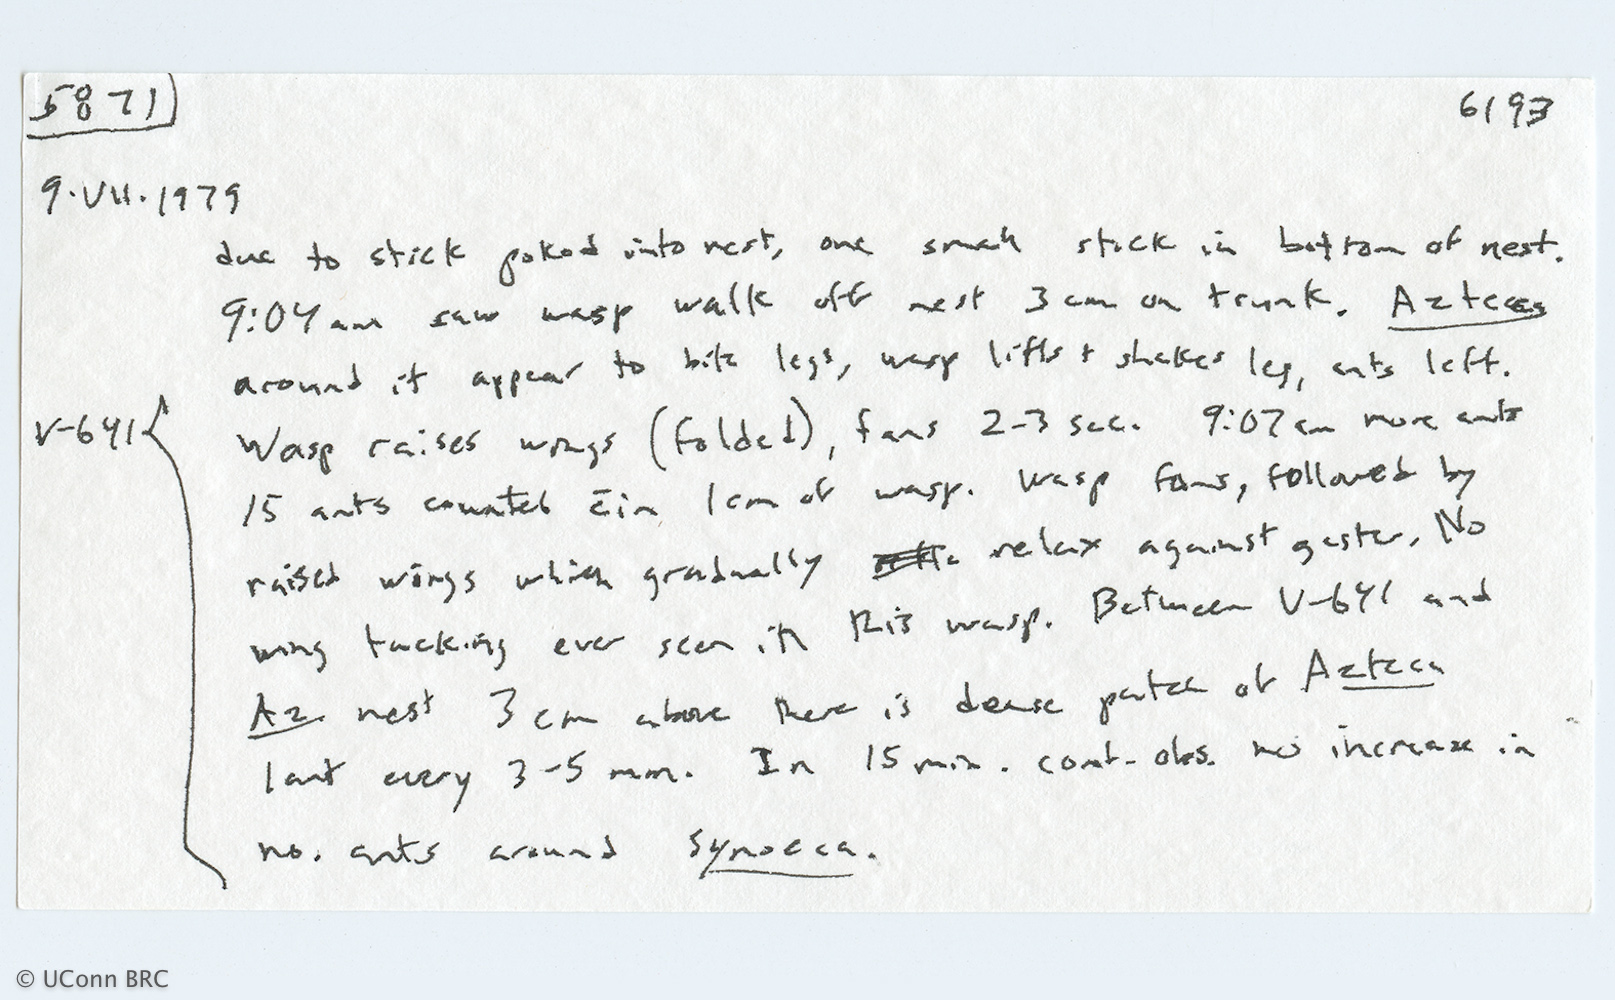 5871 6193
9.VII.1979
due to stick poked into nest, one small stick in bottom of nest.
9:04 am saw wasp walk off nest 3 cm on trunk. Aztecas
around it appear to bite legs, wasp lifts & shakes leg, ants left.
V-641 { Wasp raises wings (folded), fans 2-3 sec. 9:07 am more ants
15 ants counted c̄in 1cm of wasp. Wasp fans, followed by
raised wings which gradually relax against gaster. No
wing tucking ever seen in this wasp. Between V-641 and
Az. nest 3 cm above there is dense patch of Azteca
1 ant every 3-5 mm. In 15 min. cont. obs. no increase in
no. ants around Synoeca.
© UConn BRC